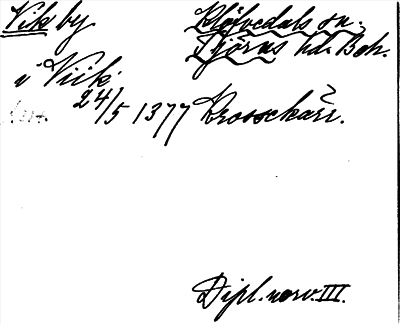 Vik by Klövedals sn.
Tjörns hd. Boh.
i Viik
24/5 1377 Krossekærr.
Dipl. norv. III.